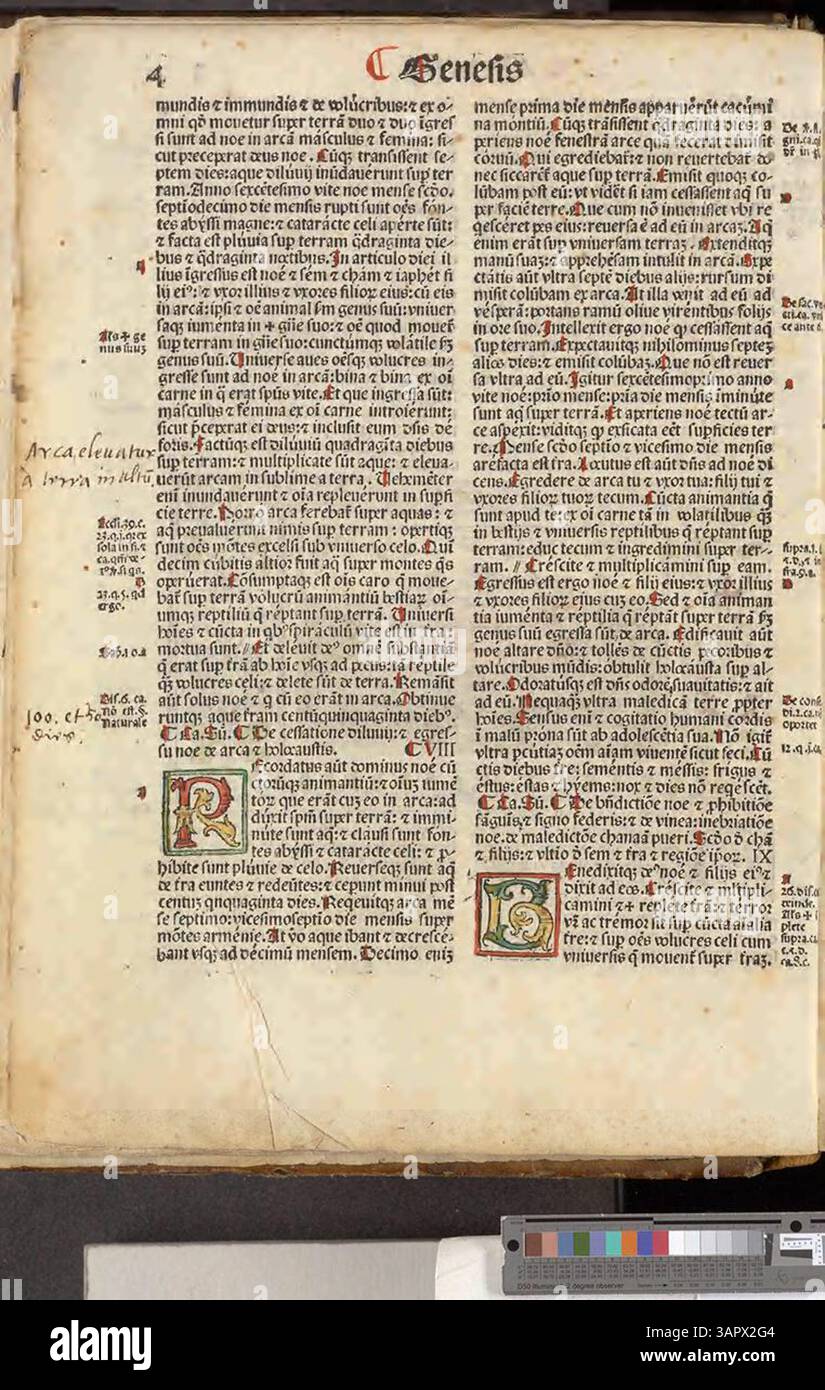 4
Genesis
mundis ⁊ immundis ⁊ de volucribus: ⁊ ex o-
mni qđ mouetur super terrā duo ⁊ duo īgres
si sunt ad noe in arcā masculus ⁊ femina: si-
cut preceperat deus noe. Cūqꝫ transissent se-
ptem dies: aque diluuij inūdauerunt sup ter
ram. Anno sexcētesimo vite noe mense scđo.
septīodecimo die mensis rupti sunt oēs fon-
tes abyssi magne: ⁊ cataracte celi aperte sūt:
⁊ facta est pluuia sup terram q̄draginta die-
bus ⁊ q̄draginta noctibus. In articulo diei il
lius īgressus est noe ⁊ sem ⁊ cham ⁊ iaphet fi
lij eiꝰ: ⁊ vxor illius ⁊ vxores filioꝝ eius: cū eis
in arcā: ipsi ⁊ oē animal s̄m genus suū: vniuer
saqꝫ iumenta in + gn̄e suo: ⁊ oē quod mouet̄
sup terram in gn̄e suo: cunctūmqꝫ volatile s̄m
genus suū. Uniuerse aues oēsqꝫ volucres in-
gresse sunt ad noe in arcā: bina ⁊ bina ex oī
carne in q̄ erat spūs vite. Et que ingressa sūt:
masculus ⁊ femina ex oī carne introierunt:
sicut p̄ceperat ei deus: ⁊ inclusit eum dn̄s de
foris. Factūqꝫ est diluuiū quadragīta diebus
sup terram: ⁊ multiplicate sūt aque: ⁊ eleua-
uerūt arcam in sublime a terra. Uehemēter
enī inundauerūt ⁊ oīa repleuerūt in supfi
cie terre. Porro arca ferebat̄ super aquas: ⁊
aq̄ preualuerunt nimis sup terram: opertiqꝫ
sunt oēs mōtes excelsi sub vniuerso celo. Qui
decim cubitis altior fuit aq̄ super montes q̄s
operuerat. Cōsumptaqꝫ est oīs caro q̄ moue-
bat̄ sup terrā volucrū animantiū bestiaꝝ oī-
umqꝫ reptiliū q̄ reptant sup terrā. Uniuersi
hoīes ⁊ cūcta in qbꝰ spiraculū vite est in tra
mortua sunt. // Et deleuit deꝰ omnē substantiā
q̄ erat sup trā ab hoīe vsqꝫ ad pecus: tā reptile
q̄ꝫ volucres celi: ⁊ delete sūt de terra. Remāsit
aūt solus noe ⁊ q̄ cū eo erāt in arca. Obtinue
runtqꝫ aque tram centūquinquaginta diebꝰ.
Ca. Sū. De cessatione diluuij: ⁊ egres-
su noe de arca ⁊ holocaustis. C VIII
REcordatus aūt dominus noe cū
ctorūqꝫ animantiū: ⁊ oīuꝫ iumē
toꝝ que erāt cuꝫ eo in arca: ad
duxit spm̄ super terrā: ⁊ immi
nute sunt aq̄: ⁊ clausi sunt fon-
tes abyssi ⁊ cataracte celi: ⁊ ꝓ-
hibite sunt pluuie de celo. Reuerseqꝫ sunt aq̄
de tra euntes ⁊ redeūtes: ⁊ cepunt minui post
centuꝫ qnquaginta dies. Reqeuitqꝫ arca mē
se septimo: vicesimoseptīo die mensis super
mōtes armenie. At vo aque ibant ⁊ decresce-
bant vsqꝫ ad decimū mensem. Decimo eniꝫ
mense prima die mensis apparuērūt cacumi
na montiū. Cūqꝫ trāsissent q̄draginta dies: a
periens noe fenestrā arce quā fecerat dimisit
coruū. Qui egrediebat̄ ⁊ non reuertebat̄ do-
nec siccarēt aque sup terrā. Emisit quoqꝫ co-
lūbam post eū: vt vidēt si iam cessassent aq̄ su
per faciē terre. Que cum nō inuenisset vbi re
qesceret pes eius: reuersa ē ad eū in arcaꝫ. Aq̄
enim erāt sup vniuersam terraꝫ. Extenditqꝫ
manū suaꝫ: ⁊ apprehēsam intulit in arcā. Expe
ctatis aūt vltra septē diebus alijs: rursum di
misit colūbam ex arca. At illa venit ad eū ad
vesperā: portans ramū oliue virentibus folijs
in ore suo. Intellexit ergo noe q̄ cessassent aq̄
sup terram. Expectauitqꝫ nihilominus septeꝫ
alios dies: ⁊ emisit colūbaꝫ. Que nō est reuer
sa vltra ad eū. Igitur sexcētesimoprimo anno
vite noe: prīo mense: pria die mensis īminute
sunt aq̄ super terrā. Et aperiens noe tectū ar-
ce aspexit: viditqꝫ q̄ exsicata eēt supficies ter
re. Mense scđo septīo ⁊ vicesimo die mensis
arefacta est tra. Locutus est aūt dn̄s ad noe di
cens. Egredere de arca tu ⁊ vxor tua: filij tui ⁊
vxores filioꝝ tuoꝝ tecum. Cūcta animantia q̄
sunt apud te: ex oī carne tā in volatilibus q̄ꝫ
in bestijs ⁊ vniuersis reptilibus q̄ reptant sup
terram: educ tecum ⁊ ingredimini super ter-
ram. // Crescite ⁊ multiplicamini sup eam.
Egressus est ergo noe ⁊ filij eius: ⁊ vxor illius
⁊ vxores filioꝝ eius cuꝫ eo. Sed ⁊ oīa animan
tia iumenta ⁊ reptilia q̄ reptāt super terrā s̄m
genus suū egressa sūt de arca. Edificauit aūt
noe altare dn̄o: ⁊ tollēs de cūctis pecoribus ⁊
volucribus mūdis: obtulit holocausta sup al-
tare. Odoratusqꝫ est dn̄s odorē suauitatis: ⁊ ait
ad eū. Nequaqꝫ vltra maledicā terre ꝓpter
hoīes. Sensus enī ⁊ cogitatio humani cordis
ī malū prona sūt ab adolescētia sua. Nō igit̄
vltra pcutiaꝫ oēm aīam viuentē sicut feci. Cū
ctis diebus tre: sementis ⁊ messis: frigus ⁊
estus: estas ⁊ hyems: nox ⁊ dies nō reqescēt.
Ca. Sū. De bn̄dictiōe noe ⁊ ꝓhibitiōe
sāguis, ⁊ signo federis: ⁊ de vinea: inebriatiōe
noe. de maledictōe chanaā pueri. Scđo đ chā
⁊ filijs: ⁊ vltio đ sem ⁊ tra ⁊ regiōe ipoꝝ. IX
BEnedixitqꝫ deꝰ noe ⁊ filijs eiꝰ ⁊
dixit ad eos. Crescite ⁊ mltipli-
camini ⁊ + replete trā: ⁊ terror
vr̄ ac tremor sit sup cūcta aīalia
tre: ⁊ sup oēs volucres celi cum
vniuersis q̄ mouent̄ super traꝫ.
Als + ge
nus suuꝫ
Arca eleuatur
a terra in altū
ergo.
naturale
oportet
12. q. j. ca
Als + i
plete
supra. ca
alamy
Image ID: 3APX2G4
www.alamy.com